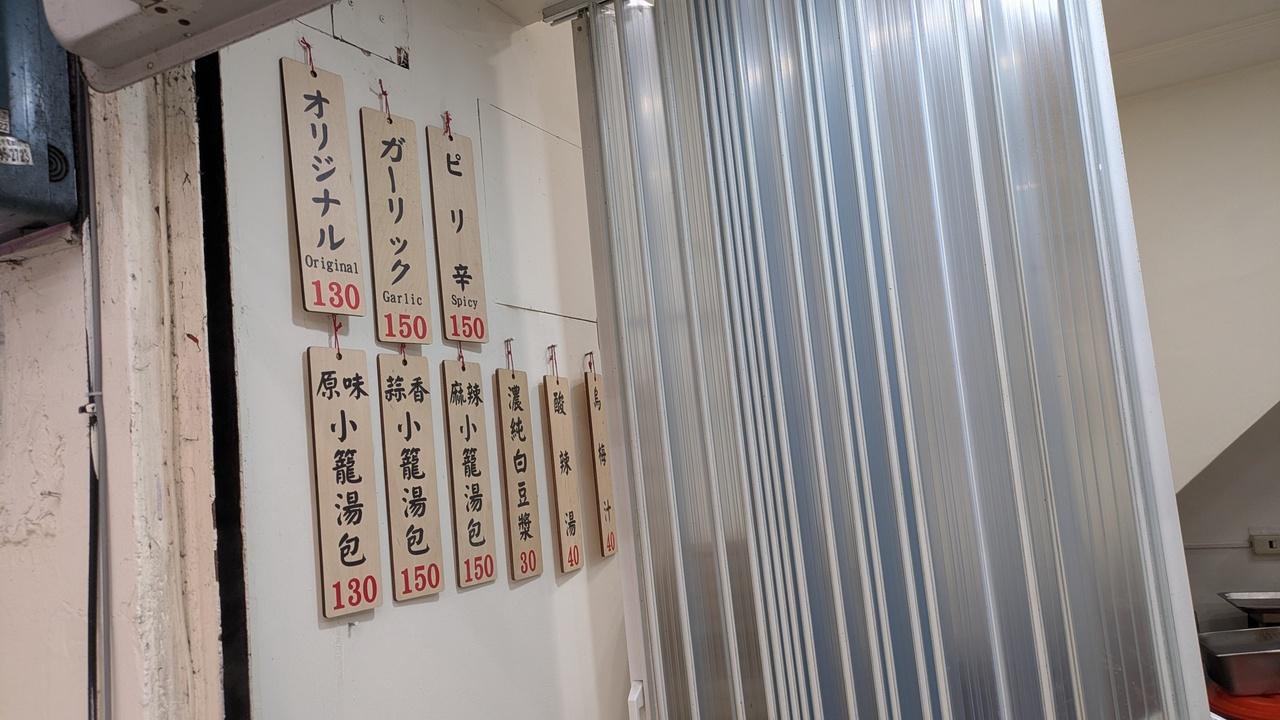 オリジナル
Original
130
ガーリック
Garlic
150
ピリ辛
Spicy
150
原味
小籠湯包
130
蒜香
小籠湯包
150
麻辣
小籠湯包
150
濃純白豆漿
30
酸辣湯
40
烏梅汁
40